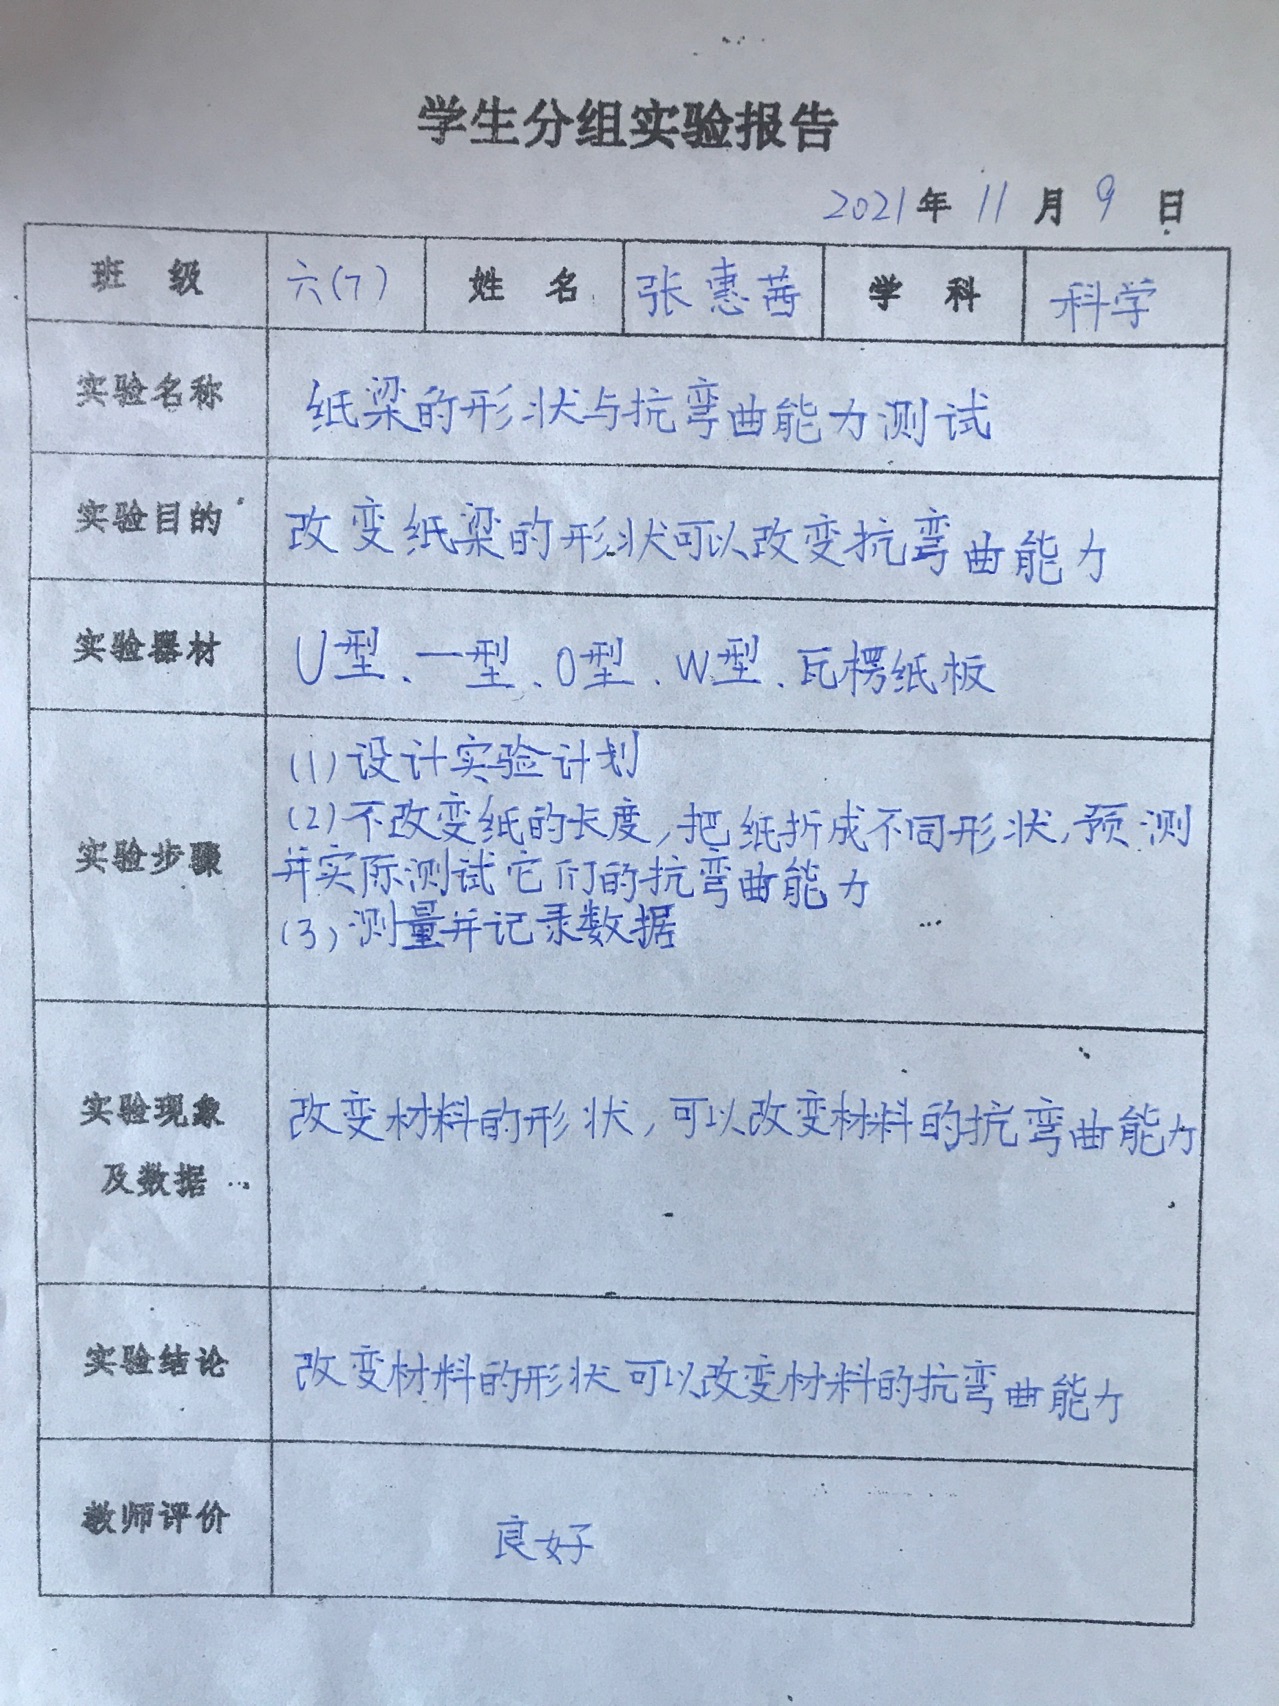 学生分组实验报告
2021年 11 月 9 日
班 级 六(7) 姓 名 张惠茜 学 科 科学
实验名称 纸梁的形状与抗弯曲能力测试
实验目的 改变纸梁的形状可以改变抗弯曲能力
实验器材 U型、一型、O型、W型、瓦楞纸板
(1)设计实验计划
(2)不改变纸的长度,把纸折成不同形状,预测
实验步骤 并实际测试它们的抗弯曲能力
(3)测量并记录数据
实验现象 改变材料的形状,可以改变材料的抗弯曲能力
及数据
实验结论 改变材料的形状可以改变材料的抗弯曲能力
教师评价 良好